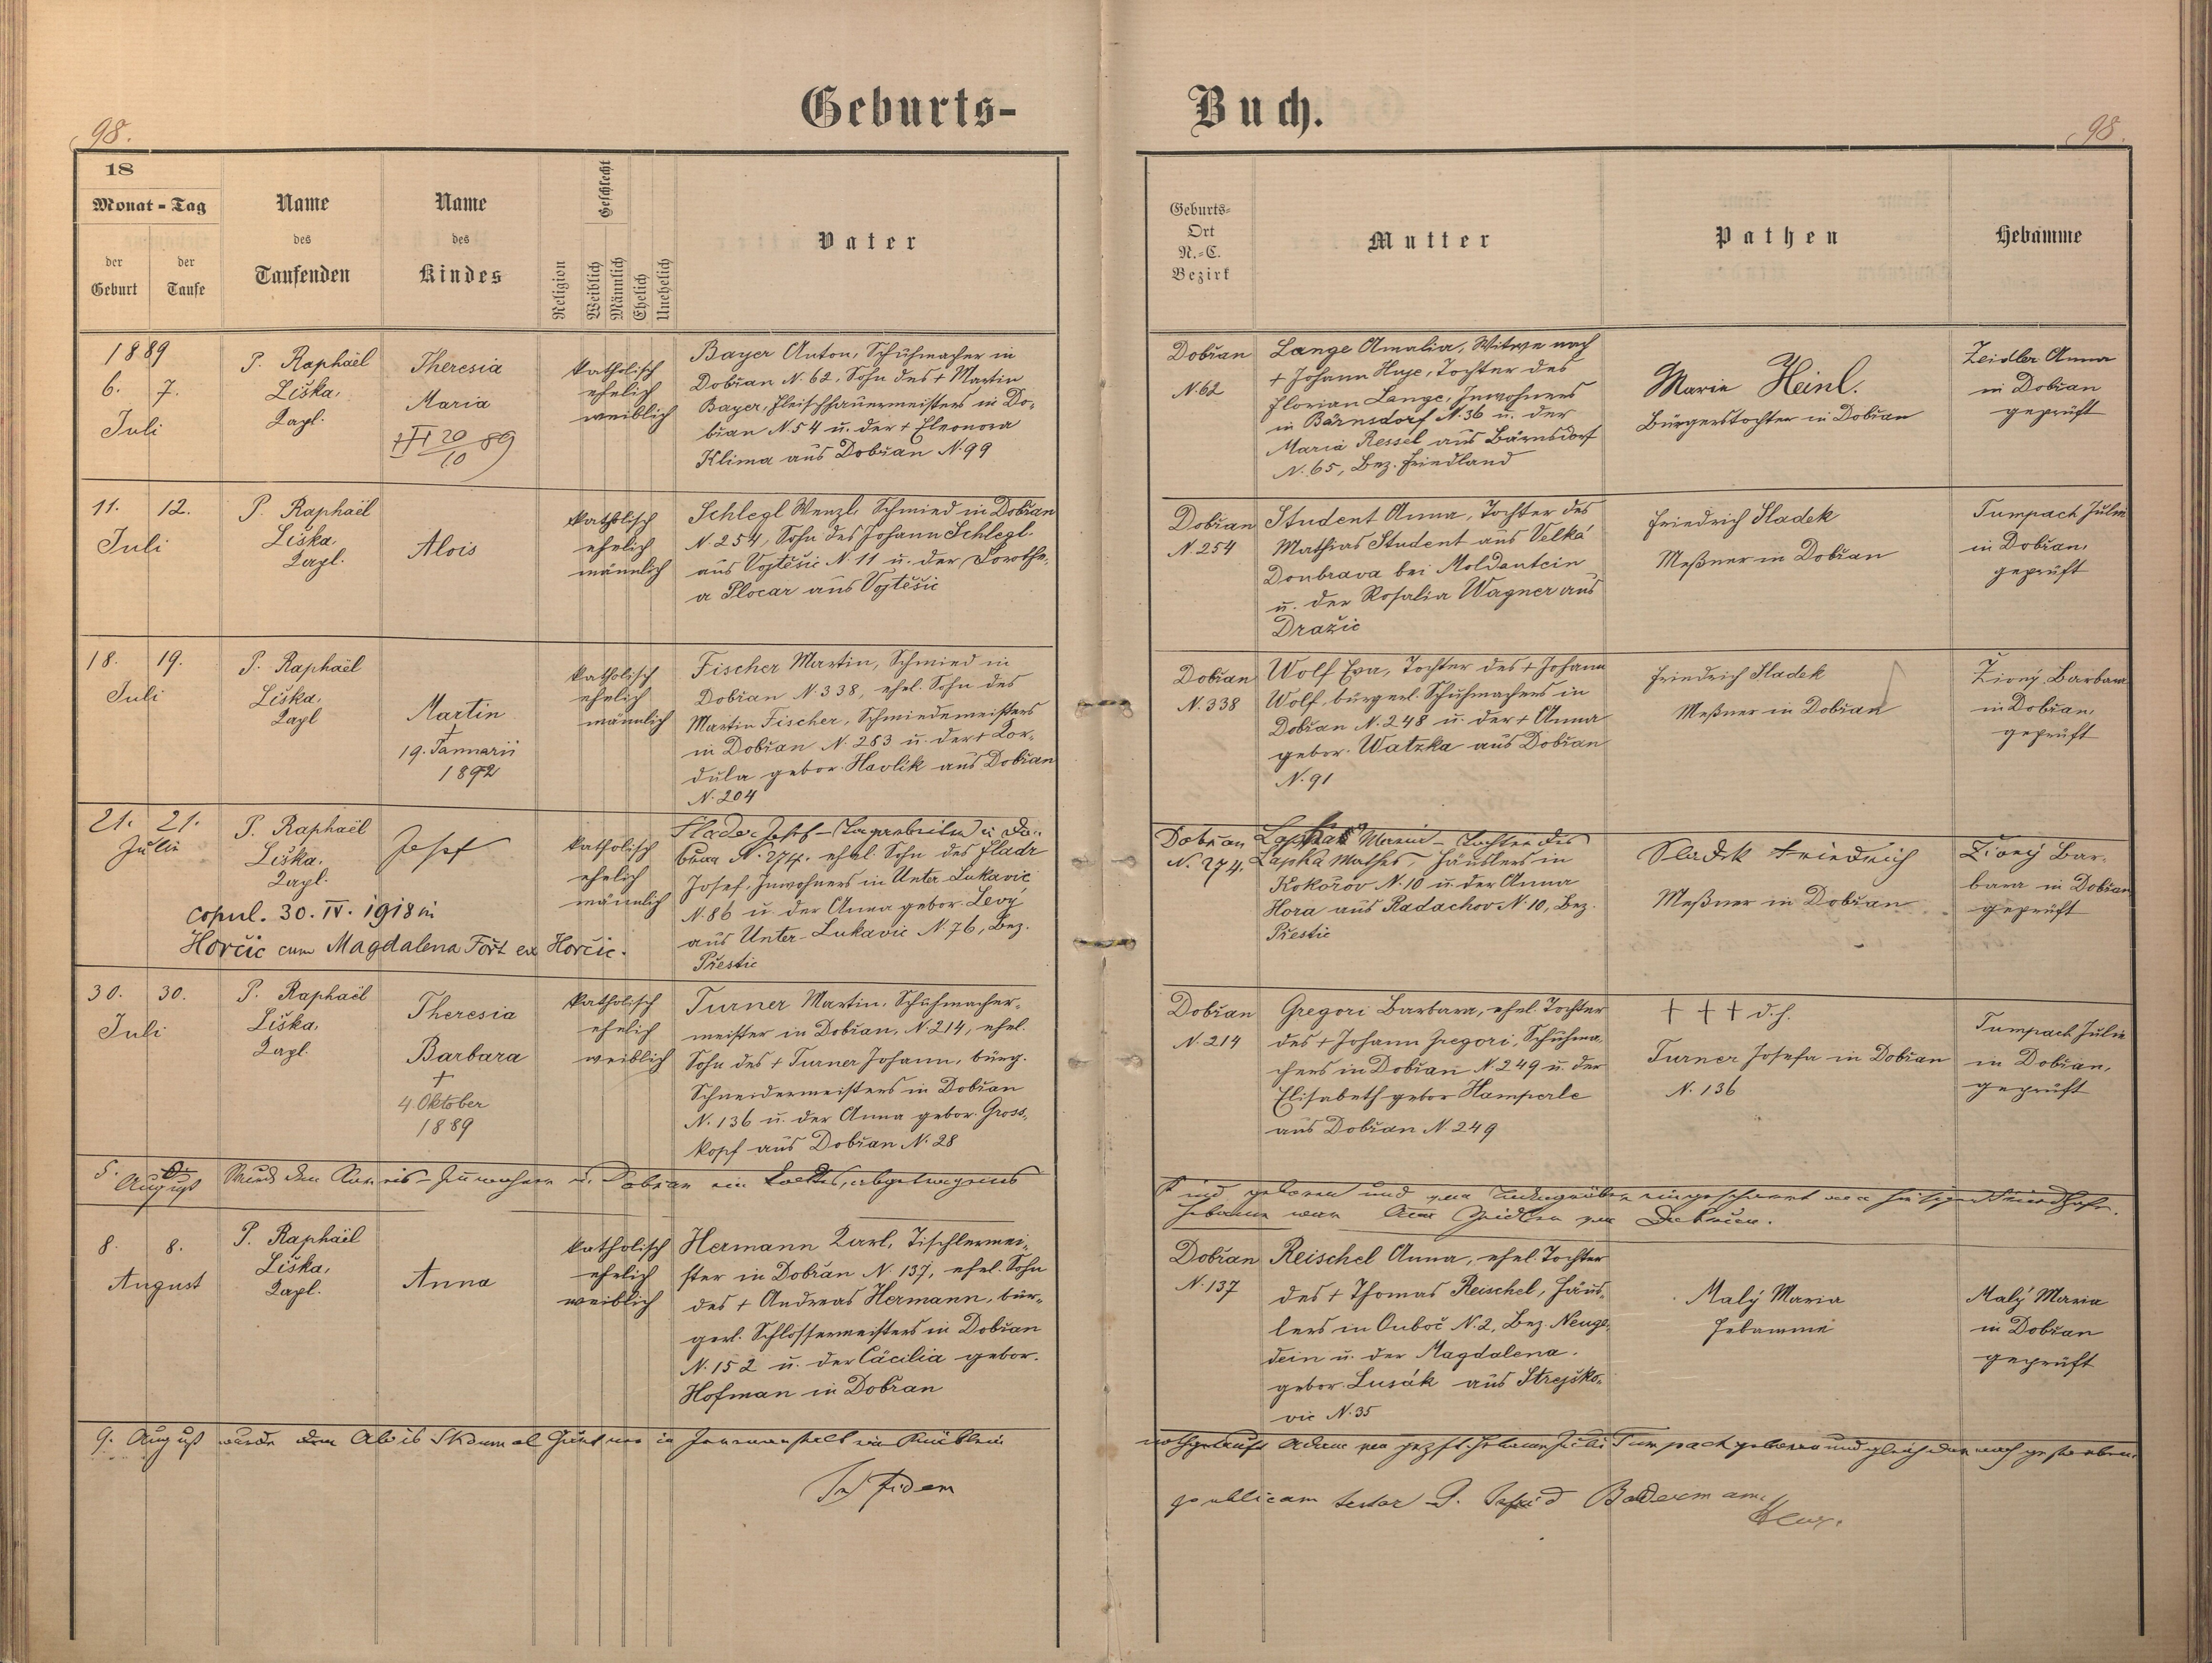 Geburts-
Buch.
98.
98.
18
Monat - Tag
der Geburt
der Taufe
Name des Taufenden
Name des Kindes
Religion
Geschlecht
Weiblich
Männlich
Ehelich
Unehelich
Vater
Geburts-
Ort
N.-C.
Bezirk
Mutter
Pathen
Hebamme
1889
6. 7.
Juli
P. Raphaël
Liška,
Kapl.
Theresia
Maria
20/10 89
katholisch
ehelich
weiblich
Bayer Anton, Schuhmacher in
Dobřan N. 62, Sohn des + Martin
Bayer, Fleischhauermeisters in Do-
břan N. 54 u. der + Eleonora
Klima aus Dobřan N. 99
Dobřan
N. 62
Lange Amalia, Witwe nach
+ Johann Huje, Tochter des
Florian Lange, Inwohners
in Bärnsdorf N. 36 u. der
Maria Ressel aus Bärnsdorf
N. 65, Bez. Friedland
Marie Heinl.
Bürgerstochter in Dobřan
Zeidler Anna
in Dobřan
geprüft
11. 12.
Juli
P. Raphaël
Liška,
Kapl.
Alois
katholisch
ehelich
männlich
Schlegl Wenzl, Schmied in Dobřan
N. 254, Sohn des Johann Schlegl
aus Vojtěšic N. 11 u. der Dorothe-
a Plocar aus Vojtěšic
Dobřan
N. 254
Student Anna, Tochter des
Mathias Student aus Velká
Doubrava bei Moldautein
u. der Rosalia Wagner aus
Dražic
Friedrich Sladek
Meßner in Dobřan
Tumpach Julie
in Dobřan,
geprüft
18. 19.
Juli
P. Raphaël
Liška,
Kapl
Martin
+
19. Jannarii
1892
katholisch
ehelich
männlich
Fischer Martin, Schmied in
Dobřan N. 338, ehel. Sohn des
Martin Fischer, Schmiedemeisters
in Dobřan N. 283 u. der + Kor-
dula gebor. Havlik aus Dobřan
N. 204
Dobřan
N. 338
Wolf Eva, Tochter des + Johann
Wolf, bürgerl. Schuhmachers in
Dobřan N. 248 u. der + Anna
gebor. Watzka aus Dobřan
N. 91
Friedrich Sladek
Meßner in Dobřan
Žiorý Barbara
in Dobřan,
geprüft
21. 21.
Julii
P. Raphaël
Liška,
Kapl.
Josef
copul. 30. IV. 1918 in
Horčic cum Magdalena Fořt ex Horčic.
katholisch
ehelich
männlich
Josef
N. 274. ehel. Sohn des Fladr
Josef, Inwohners in Unter-Lukavic
N. 86 u. der Anna gebor. Levý
aus Unter-Lukavic N. 76, Bez.
Přestic
Dobřan
N. 274.
Tochter des
Lapka Mathes, Häuslers in
Kokořov N. 10 u. der Anna
Hora aus Radachov N. 10, Bez.
Přestic
Sladek Friedrich
Meßner in Dobřan
Žiorý Bar-
bara in Dobřan
geprüft
30. 30.
Juli
P. Raphaël
Liška,
Kapl.
Theresia
Barbara
+
4. Oktober
1889
katholisch
ehelich
weiblich
Turner Martin, Schuhmacher-
meister in Dobřan, N. 214, ehel.
Sohn des + Turner Johann, bürg.
Schneidermeisters in Dobřan
N. 136 u. der Anna gebor. Gross-
kopf aus Dobřan N. 28
Dobřan
N. 214
Gregori Barbara, ehel. Tochter
des + Johann Gregori, Schuhma-
chers in Dobřan N. 249 u. der
Elisabeth gebor Hamperle
aus Dobřan N. 249
+ + + d. h.
Turner Josefa in Dobřan
N. 136
Tumpach Julie
in Dobřan,
geprüft
5.
August
Wurde dem Inwohner in Dobřan ein todtes,
Kind geboren und vom Todtengräber eingescharrt am hiesigen Friedhofe.
Hebamme war Anna Zeidler von Dobřan.
8. 8.
August
P. Raphaël
Liška,
Kapl.
Anna
katholisch
ehelich
weiblich
Hermann Karl, Tischlermei-
ster in Dobřan N. 137, ehel. Sohn
des + Andreas Hermann, bür-
gerl. Schlossermeisters in Dobřan
N. 152 u. der Cäcilia gebor.
Hofman in Dobřan
Dobřan
N. 137
Reischel Anna, ehel. Tochter
des + Thomas Reischel, Häus-
lers in Ouboč N. 2, Bez. Neuge-
dein u. der Magdalena
gebor. Lusák aus Strejško-
vic N. 35
Malý Maria
Hebamme
Malý Maria
in Dobřan
geprüft
9. August wurde dem Alois Skoumal Gärtner in Irrenanstalt ein Knäblein
nothgetauft Adam von gepft. Hebamme Juli Tumpach geboren und gleich darnach gestorben.
In fidem
publicam testor P.